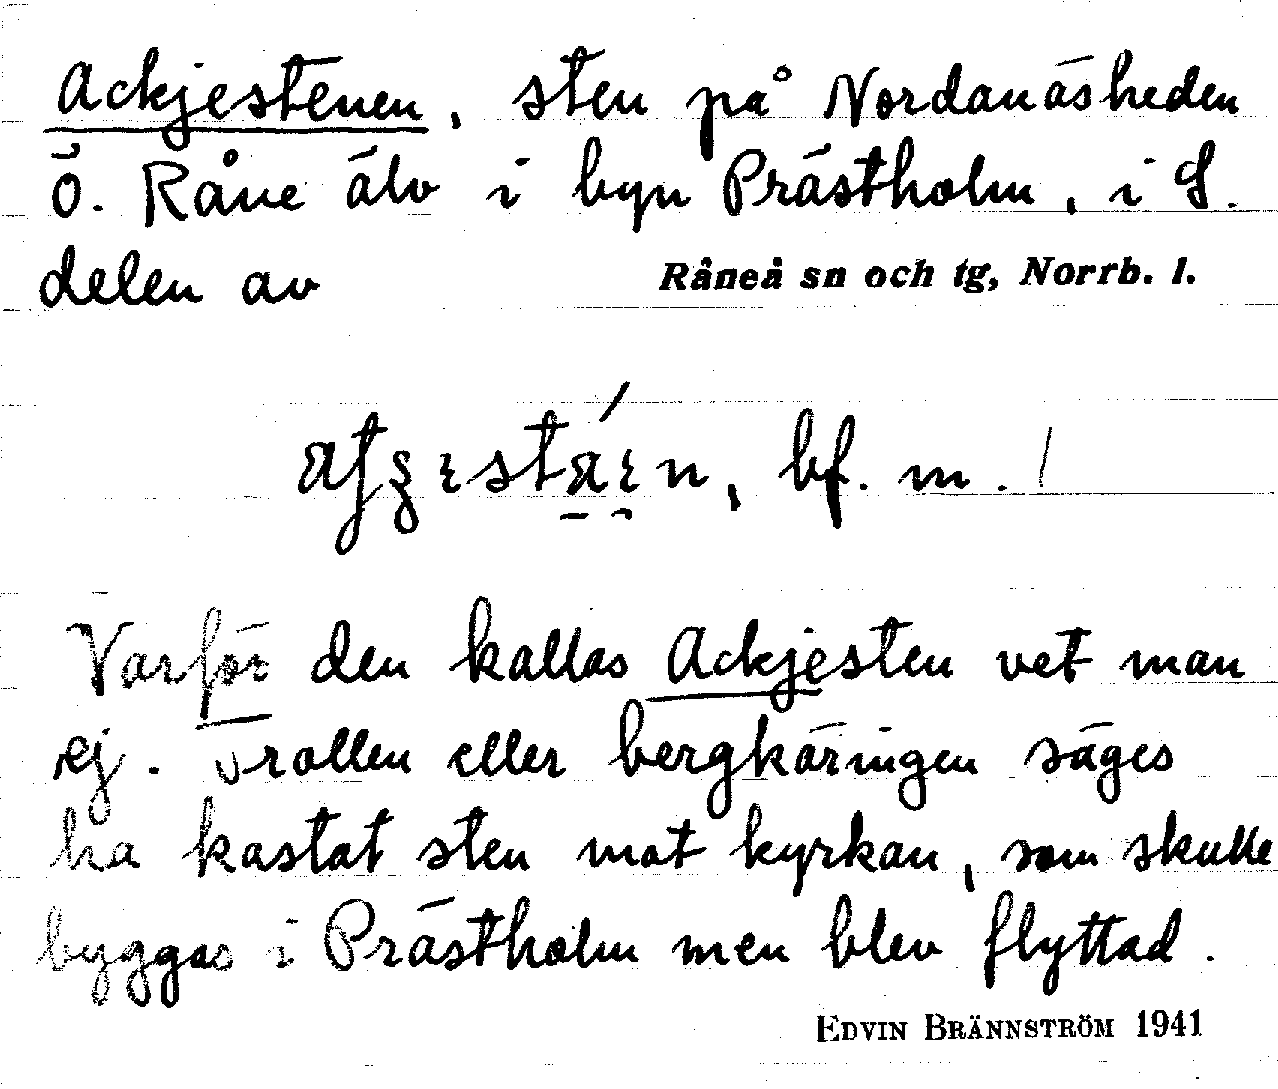 Ackjestenen, sten på Nordanäsheden
ö. Råne älv i byn Prästholm, i S.
delen av Råneå sn och tg, Norrb. l.
bf. m.
Varför den kallas Ackjesten vet man
ej. Trollen eller bergkäringen säges
ha kastat sten mot kyrkan, som skulle
byggas i Prästholm men blev flyttad.
EDVIN BRÄNNSTRÖM 1941